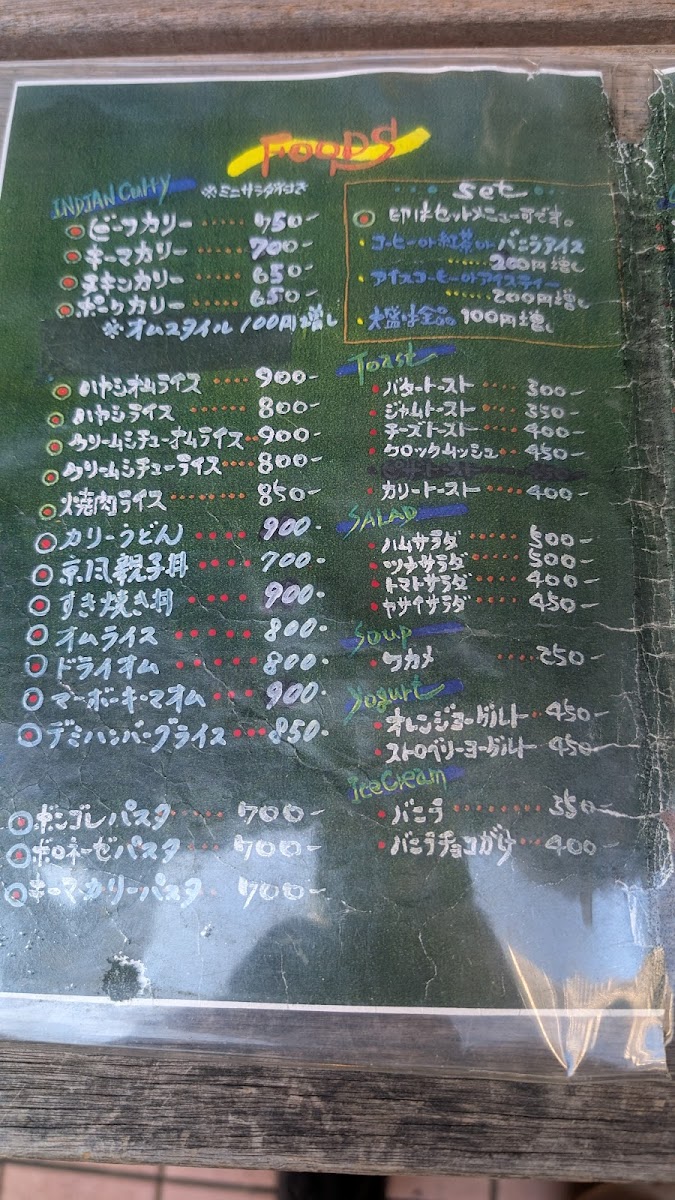 FOODS
INDIAN Curry ※ミニサラダ付き
ビーフカリー ・・・・・ 750-
キーマカリー ・・・・・ 700-
チキンカリー ・・・・ 650-
ポークカリー ・・・・ 650-
※オムスタイル 100円増し
ハヤシオムライス ・・・・ 900-
ハヤシライス ・・・・ 800-
クリームシチューオムライス・・900-
クリームシチューライス・・・・ 800-
焼肉ライス ・・・・・・・・ 850-
カリーうどん ・・・・ 900-
京風親子丼 ・・・・ 700-
すき焼き丼 ・・・・ 900-
オムライス ・・・・・・ 800-
ドライオム ・・・・・・ 800-
マーボーキーマオム ・・・ 900-
デミハンバーグライス ・・・850-
ボンゴレパスタ ・・・・ 700-
ボロネーゼパスタ ・・・ 700-
キーマカリーパスタ ・ 700-
set
印はセットメニュー可です。
コーヒーor紅茶orバニラアイス
・・・・・・ 200円増し
アイスコーヒーorアイスティー
・・・・・・ 200円増し
大盛は全品 100円増し
Toast
バタートースト ・・・・ 300-
ジャムトースト ・・・・ 350-
チーズトースト ・・・・ 400-
クロックムッシュ ・・・ 450-
カリートースト ・・・・ 400-
SALAD
ハムサラダ ・・・・・ 500-
ツナサラダ ・・・・・ 500-
トマトサラダ ・・・・ 400-
ヤサイサラダ ・・・・ 450-
Soup
ワカメ ・・・・・ 250-
Yogurt
オレンジヨーグルト ・・ 450-
ストロベリーヨーグルト ・・ 450-
IceCream
バニラ ・・・・・・・・ 350-
バニラチョコがけ ・・・ 400-